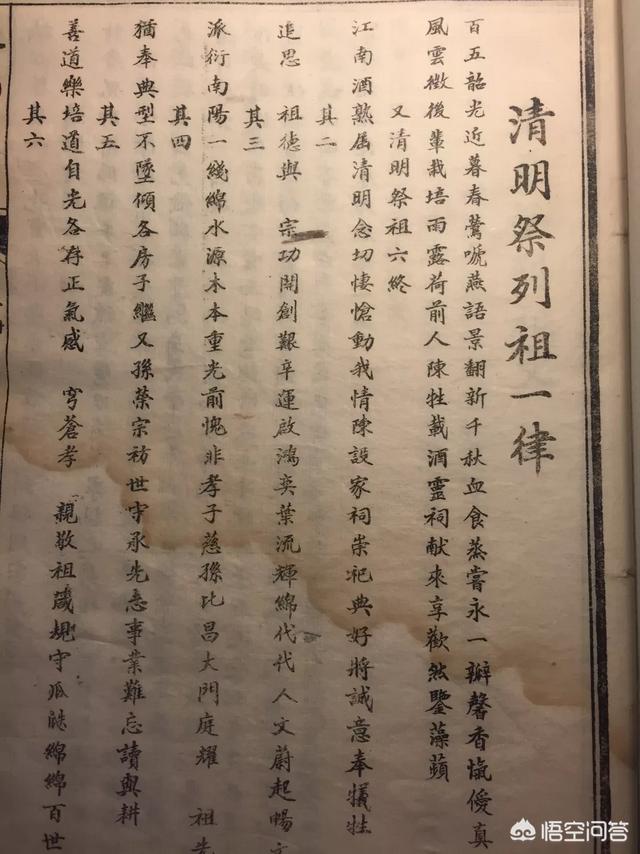 清明祭列祖一律
百五韶光近暮春鶯嗁燕語景翻新千秋血食蒸嘗永一瓣馨香愾僾真
風雲徵後輩栽培雨露荷前人陳牲載酒靈祠献來享歡然鑒藻蘋
又清明祭祖六終
江南酒熟届清明念切悽愴動我情陳設家祠崇祀典好將誠意奉犧牲
其二
追思 祖德與 宗功開創艱辛運啟鴻奕葉流輝綿代代人文蔚起暢
其三
派衍南陽一綫綿水源木本重光前愧非孝子慈孫比昌大門庭耀 祖先
其四
猶奉典型不墜傾各房子繼又孫榮宗祊世守承先志事業難忘讀與耕
其五
善道樂培道自光各存正氣感 穹蒼孝 親敬祖箴規守瓜瓞綿綿百世
其六
悟空问答